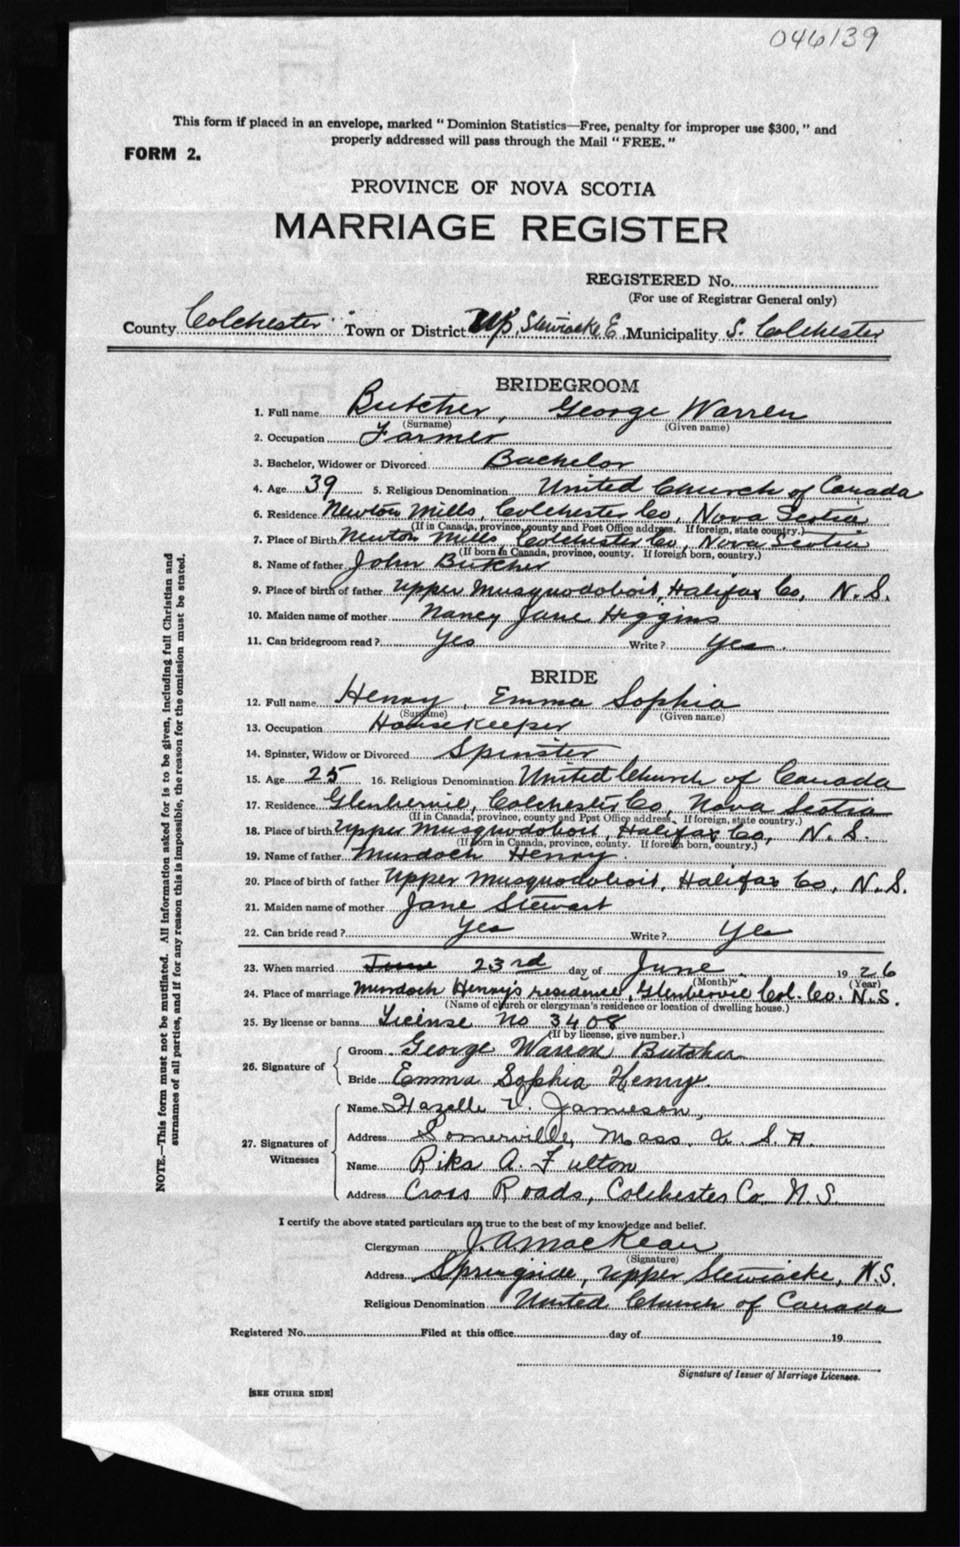 046139
This form if placed in an envelope, marked " Dominion Statistics—Free, penalty for improper use $300, " and
properly addressed will pass through the Mail " FREE. "
FORM 2.
PROVINCE OF NOVA SCOTIA
MARRIAGE REGISTER
REGISTERED No.
(For use of Registrar General only)
County Colchester Town or District Up. Stewiacke E. Municipality S. Colchester
BRIDEGROOM
1. Full name Butcher, George Warren
(Surname) (Given name)
2. Occupation Farmer
3. Bachelor, Widower or Divorced Bachelor
4. Age 39 5. Religious Denomination United Church of Canada
6. Residence Newton Mills, Colchester Co, Nova Scotia
(If in Canada, province, county and Post Office address. If foreign, state country.)
7. Place of Birth Newton Mills, Colchester Co, Nova Scotia
(If born in Canada, province, county. If foreign born, country.)
8. Name of father John Butcher
9. Place of birth of father Upper Musquodoboit, Halifax Co, N.S.
10. Maiden name of mother Nancy Jane Higgins
11. Can bridegroom read? Yes Write? Yes.
BRIDE
12. Full name Henry, Emma Sophia
(Surname) (Given name)
13. Occupation Housekeeper
14. Spinster, Widow or Divorced Spinster
15. Age 25 16. Religious Denomination United Church of Canada
17. Residence Glenbervie, Colchester Co, Nova Scotia
(If in Canada, province, county and Post Office address. If foreign, state country.)
18. Place of birth Upper Musquodoboit, Halifax Co, N.S.
(If born in Canada, province, county. If foreign born, country.)
19. Name of father Murdoch Henry.
20. Place of birth of father Upper Musquodoboit, Halifax Co, N.S.
21. Maiden name of mother Jane Stewart
22. Can bride read? Yes Write? Yes
23. When married June 23rd day of June 1926
(Month) (Year)
24. Place of marriage Murdoch Henry's residence, Glenbervie Col. Co. N.S.
(Name of church or clergyman's residence or location of dwelling house.)
25. By license or banns License no 3408
(If by license, give number.)
26. Signature of
Groom George Warren Butcher
Bride Emma Sophia Henry.
27. Signatures of Witnesses
Name Hazelle V. Jamieson,
Address Somerville, Mass, U.S.A.
Name Rika A. Fulton
Address Cross Roads, Colchester Co, N.S.
I certify the above stated particulars are true to the best of my knowledge and belief.
Clergyman J. A. MacKean
(Signature)
Address Springside, Upper Stewiacke, N.S.
Religious Denomination United Church of Canada
Registered No. Filed at this office day of 19
Signature of Issuer of Marriage Licenses.
[SEE OTHER SIDE]
NOTE.—This form must not be mutilated. All information asked for is to be given, including full Christian and
surnames of all parties, and if for any reason this is impossible, the reason for the omission must be stated.